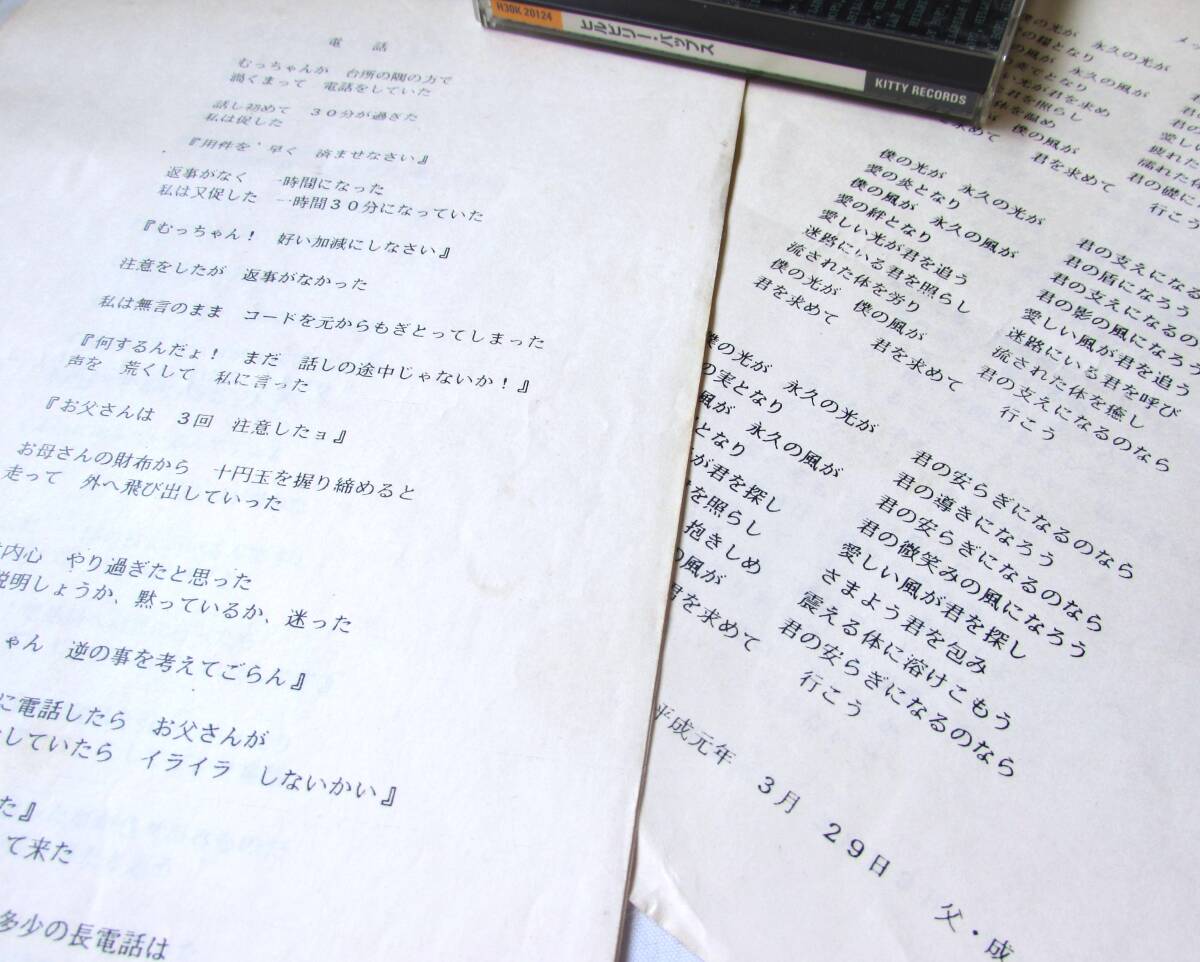 H30K 20124
ヒルビリー・バップス
KITTY RECORDS
電　話
むっちゃんが　台所の隅の方で
渦くまって　電話をしていた
話し初めて　３０分が過ぎた
私は促した
『用件を　早く　済ませなさい』
返事がなく　一時間になった
私は又促した　一時間３０分になっていた
『むっちゃん！　好い加減にしなさい』
注意をしたが　返事がなかった
私は無言のまま　コードを元からもぎとってしまった
『何するんだょ！　まだ　話しの途中じゃないか！』
声を　荒くして　私に言った
『お父さんは　３回　注意したョ』
お母さんの財布から　十円玉を握り締めると
走って　外へ飛び出していった
内心　やり過ぎたと思った
説明しょうか、黙っているか、迷った
ゃん　逆の事を考えてごらん』
に電話したら　お父さんが
していたら　イライラ　しないかい』
た』
て来た
多少の長電話は
メッ
僕の光が　永久の光が
の糧となり
の風が　永久の風が
となり
い光が君を求め
君を照らし
体を温め
僕の風が
求めて　君を求めて
君の
君の
愛しい
疲れた
濡れた
君の礎に
行こう
僕の光が　永久の光が
愛の炎となり
僕の風が　永久の風が
愛の絆となり
愛しい光が君を追う
迷路にいる君を照らし
流された体を労り
僕の光が　僕の風が
君を求めて　君を求めて
君の支えになる
君の盾になろう
君の支えになるの
君の影の風になろう
愛しい風が君を追う
迷路にいる君を呼び
流された体を癒し
君の支えになるのなら
行こう
僕の光が　永久の光が
の実となり
風が　永久の風が
となり
が君を探し
を照らし
抱きしめ
の風が
君を求めて
君の安らぎになるのなら
君の導きになろう
君の安らぎになるのなら
君の微笑みの風になろう
愛しい風が君を探し
さまよう君を包み
震える体に溶けこもう
君の安らぎになるのなら
行こう
平成元年　３月　２９日　父・成